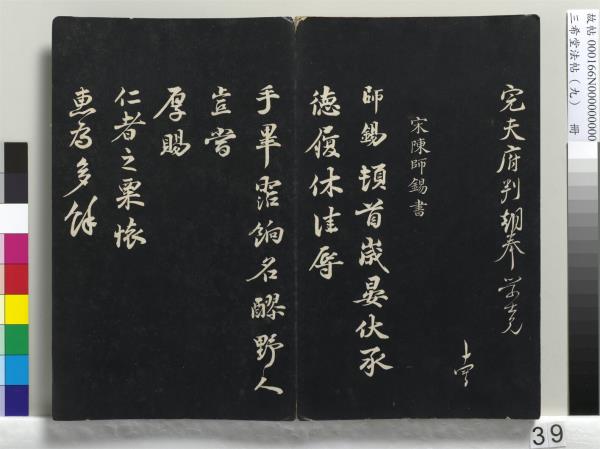 完夫府判朝奉學士兄
宋陳師錫書
師錫頓首歲晏伏承
德履休佳辱
手畢寵餉名醪野人
豈嘗
厚賜
仁者之粟懷
惠為多餘
故帖 000166N000000000
三希堂法帖（九） 冊
39